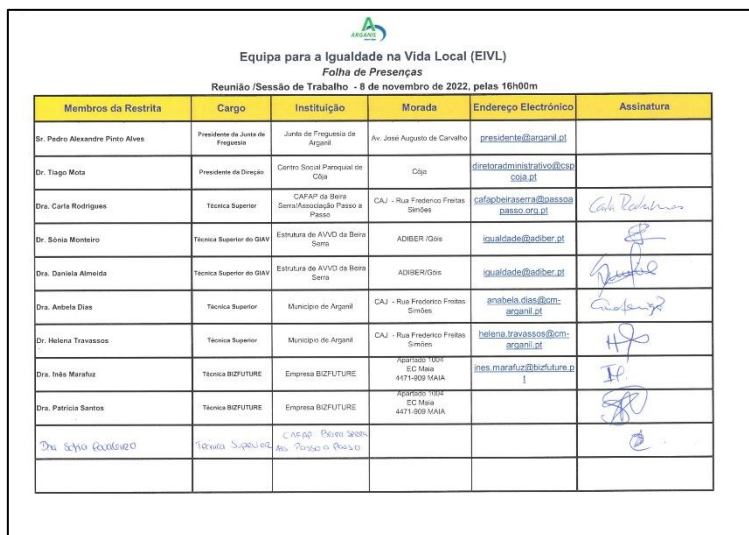 ARGANIL
Equipa para a Igualdade na Vida Local (EIVL)
Folha de Presenças
Reunião /Sessão de Trabalho - 8 de novembro de 2022, pelas 16h00m
Membros da Restrita Cargo Instituição Morada Endereço Electrónico Assinatura
Sr. Pedro Alexandre Pinto Alves Presidente da Junta de Freguesia Junta de Freguesia de Arganil Av. José Augusto de Carvalho presidente@arganil.pt
Dr. Tiago Mota Presidente da Direção Centro Social Paroquial de Côja Côja diretoradministrativo@cspcoja.pt
Dra. Carla Rodrigues Técnica Superior CAFAP da Beira Serra/Associação Passo a Passo CAJ - Rua Frederico Freitas Simões cafapbeiraserra@passoapasso.org.pt Carla Rodrigues
Dr. Sónia Monteiro Técnica Superior do GIAV Estrutura de AVVD da Beira Serra ADIBER /Góis igualdade@adiber.pt
Dra. Daniela Almeida Técnica Superior do GIAV Estrutura de AVVD da Beira Serra ADIBER/Góis igualdade@adiber.pt
Dra. Anbela Dias Técnica Superior Município de Arganil CAJ - Rua Frederico Freitas Simões anabela.dias@cm-arganil.pt
Dr. Helena Travassos Técnica Superior Município de Arganil CAJ - Rua Frederico Freitas Simões helena.travassos@cm-arganil.pt
Dra. Inês Marafuz Técnica BIZFUTURE Empresa BIZFUTURE Apartado 1004 EC Maia 4471-909 MAIA ines.marafuz@bizfuture.pt
Dra. Patrícia Santos Técnica BIZFUTURE Empresa BIZFUTURE Apartado 1004 EC Maia 4471-909 MAIA
Dra Sofia Técnica Superior CAFAP Beira Serra Passo a Passo